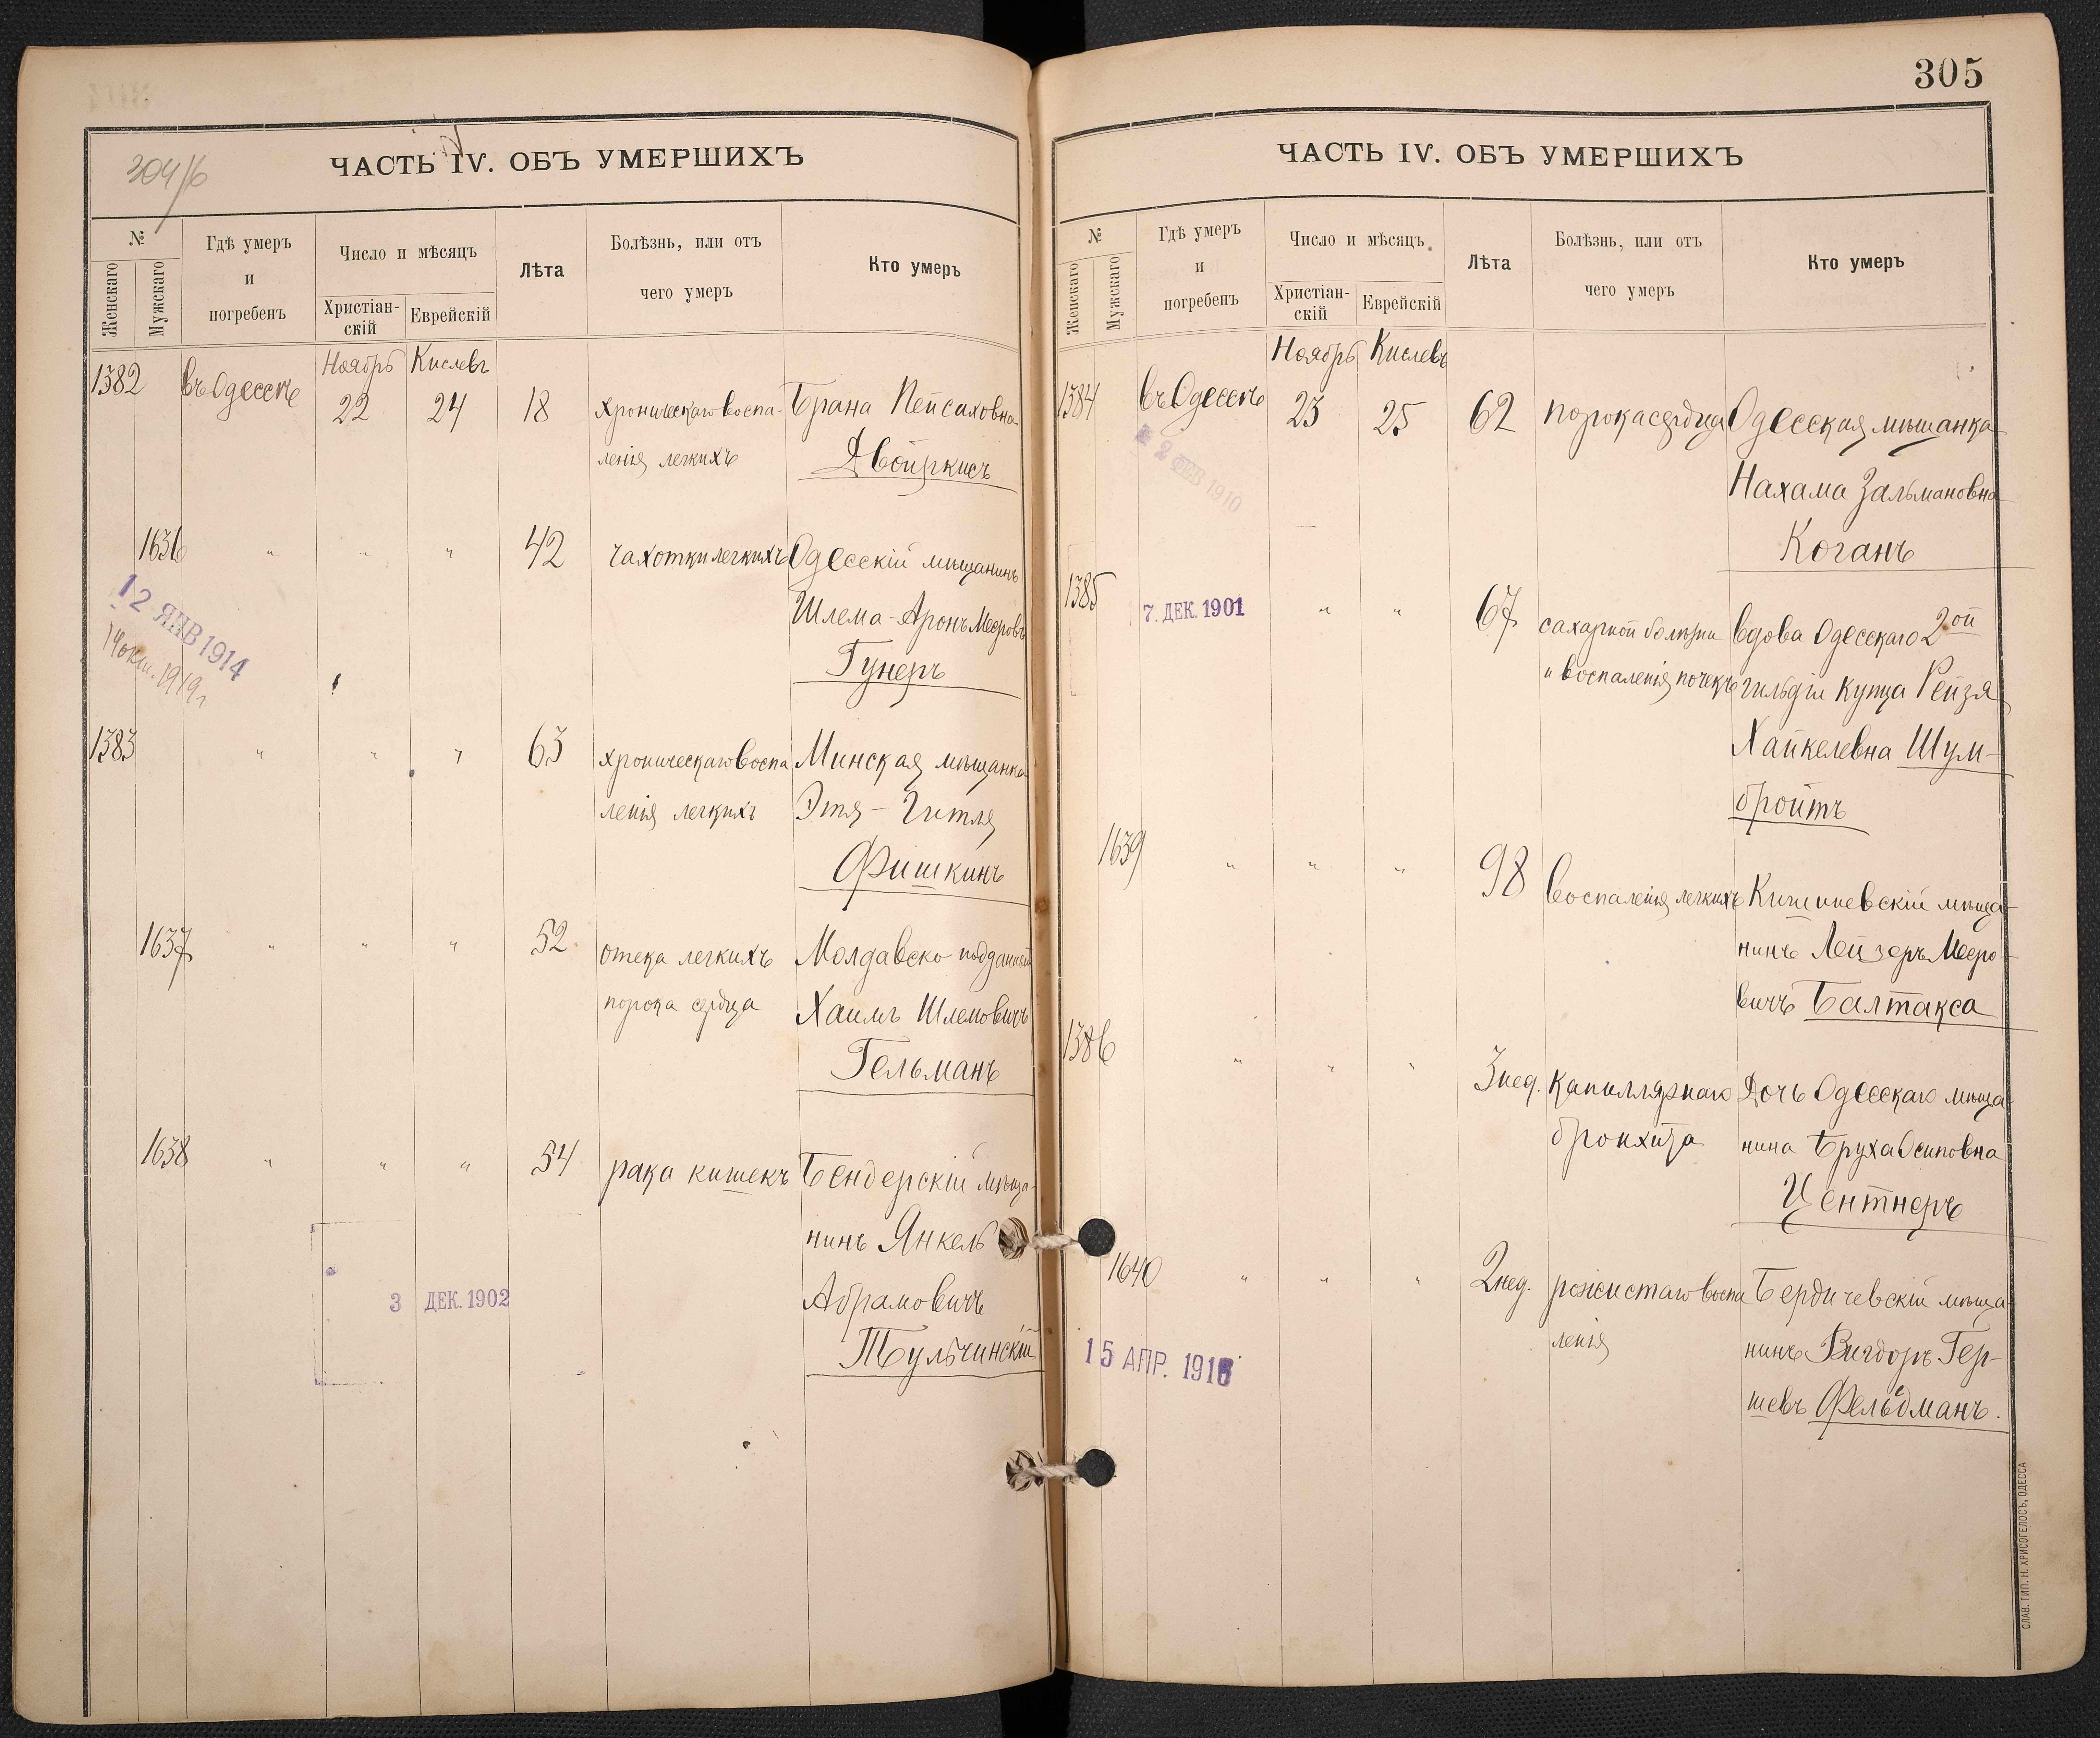 304/б
ЧАСТЬ IV. ОБЪ УМЕРШИХЪ
№
Женскаго
Мужскаго
Гдѣ умеръ
и
погребенъ
Число и мѣсяцъ
Христіан-
скій
Еврейскій
Лѣта
Болѣзнь, или отъ
чего умеръ
Кто умеръ
Ноябрь Кислевъ
1382 въ Одессѣ 22 24 18 хроническаго воспа- Брана Пейсаховна
ленія легкихъ Двойркисъ
1636 " " " 42 чахотки легкихъ Одесскій мѣщанинъ
Шлема-Аронъ Меровъ
Гунеръ
12 ЯНВ 1914
14 окт. 1919 г.
1383 " " " 63 хроническаго воспа Минская мѣщанка
ленія легкихъ Этя-Гитля
Фишкинъ
1637 " " " 52 отека легкихъ Молдавско-подданный
порока сердца Хаимъ Шлемовичъ
Гельманъ
1638 " " " 54 рака кишекъ Бендерскій мѣща-
нинъ Янкель
Абрамовичъ
Тульчинскій
3 ДЕК. 1902
305
ЧАСТЬ IV. ОБЪ УМЕРШИХЪ
№
Женскаго
Мужскаго
Гдѣ умеръ
и
погребенъ
Число и мѣсяцъ
Христіан-
скій
Еврейскій
Лѣта
Болѣзнь, или отъ
чего умеръ
Кто умеръ
Ноябрь Кислевъ
1384 въ Одессѣ 23 25 62 порока сердца Одесская мѣщанка
Нахама Зальмановна
Коганъ
2 ФЕВ 1910
1385 7. ДЕК. 1901 " " 67 сахарной болѣзни вдова Одесскаго 2ой
и воспаленія почекъ гильдіи купца Рейзя
Хайкелевна Шум-
бройтъ
1639 " " " 98 воспаленія легкихъ Кишиневскій мѣща-
нинъ Лейзеръ Меро-
вичъ Балтакса
1386 " " " 3 нед. капиллярнаго Дочь Одесскаго мѣща-
бронхита нина Бруха Осиповна
Центнеръ
1640 " " " 2 нед. рожистаго воспа Бердичевскій мѣща-
ленія нинъ Вигдоръ Гер-
шевъ Фельдманъ.
15 АПР. 191
СЛАВ. ТИП. Н. ХРИСОГЕЛОСЪ, ОДЕССА